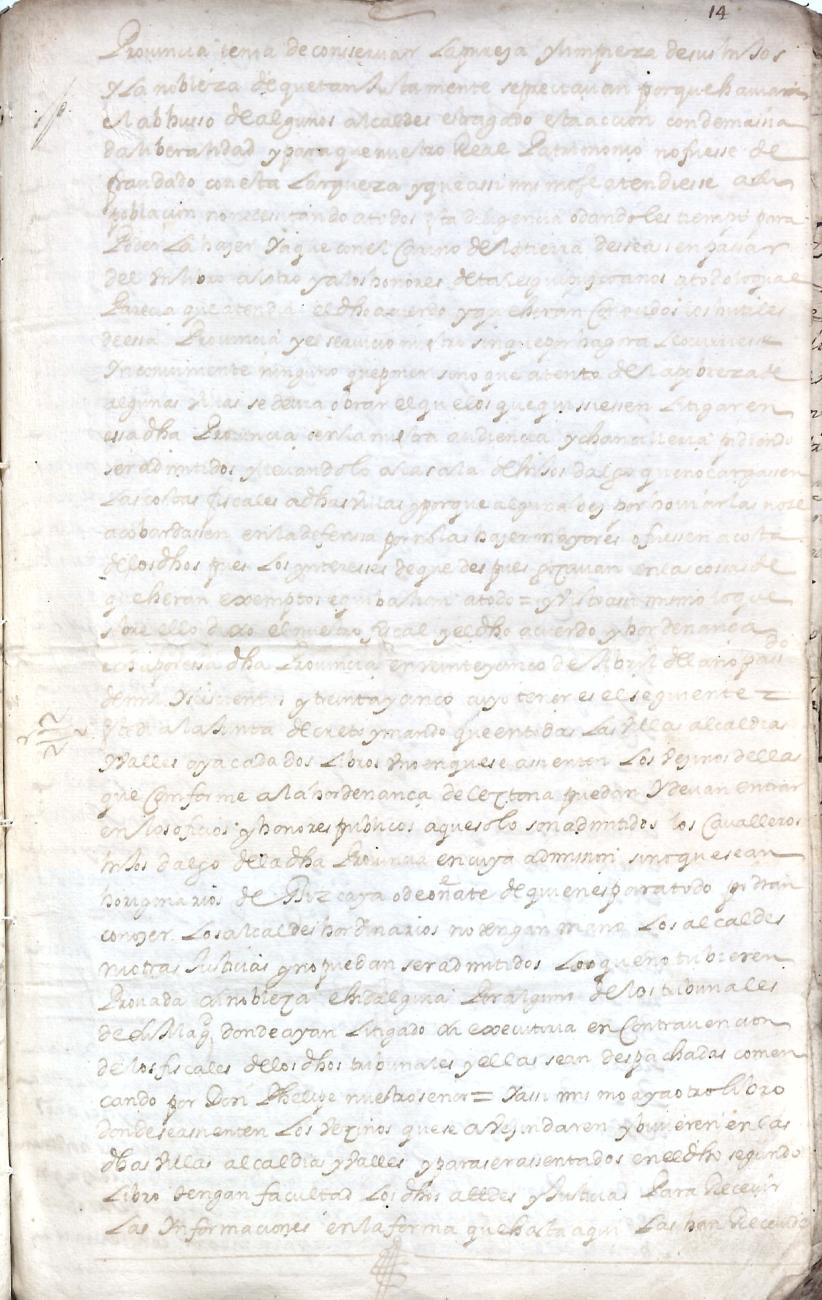 14
Provincia tenia de conservar la pureza y limpieza de sus hijos
y la nobleza de que tan justamente se preciavan porque havian
el abhuso de algunos alcaldes estragado esta accion con demasia
da liberalidad y para que nuestro Real Patrimonio no fuesse de
fraudado con esta largueza y que assi mismo se atendiesse a la
poblacion no necesitando a todos esta diligencia o dandoles tiempo para
poder la hazer ya que con el carino de la tierra desseassen passar
del un libro al otro y a los honores de tales a todo lo qual
parecia que atendia el dho acuerdo y que heran conocidos los utiles
de essa Provincia y el servicio nuestro sin que
inconviniente ninguno que poner sino que atento de la pobreza de
algunas villas se devia obrar el que los que quissiessen litigar en
essa dha Provincia o en la nuestra audiencia y chancilleria pidiendo
ser admitidos y llevandolo a la sala de hijos dalgo que no cargassen
las costas fiscales a dhas villas y porque alguna vez por no
acobardassen en la defensa por no las hazer mayores o fuessen a costa
de los dhos pues los yntereses de que despues gozavan en las cossas de
que heran exemptos equibalian a todo = y visto assi mismo lo que
sobre ello dixo el nuestro fiscal y el dho acuerdo y hordenança
echa por essa dha Provincia en veinte y cinco de Abril del año passado
de mil y seiscientos y treinta y cinco cuyo tenor es el seguiente =
Este dia la Junta decreto y mando que en todas las villas alcaldias
y valles aya cada dos libros uno en que se asienten los vezinos dellas
que conforme a la hordenança de Cestona puedan y devan entrar
en los oficios y honores publicos a que solo son admitidos los cavalleros
hijos dalgo de la dha Provincia en cuya admision sino que sean
horiginarios de Bizcaya o de oñate de quienes para todo podran
conozer los alcaldes hordinarios no tengan mano los alcaldes
ni otras Justicias y no puedan ser admitidos los que no tubieren
provada su nobleza e hidalguia por alguno de los tribunales
de su Magd donde ayan litigado su executoria en contravencion
de los fiscales de los dhos tribunales y ellas sean despachadas comen
cando por Don Phelipe nuestro señor = y assi mismo aya otro libro
donde se asienten los vezinos que se avezindaren y vivieren en las
dhas villas alcaldias y valles y para ser assentados en el dho segundo
libro tengan facultad los dhos alldes y Justicias para recevir
las ynformaciones en la forma que hasta aqui las han recevido